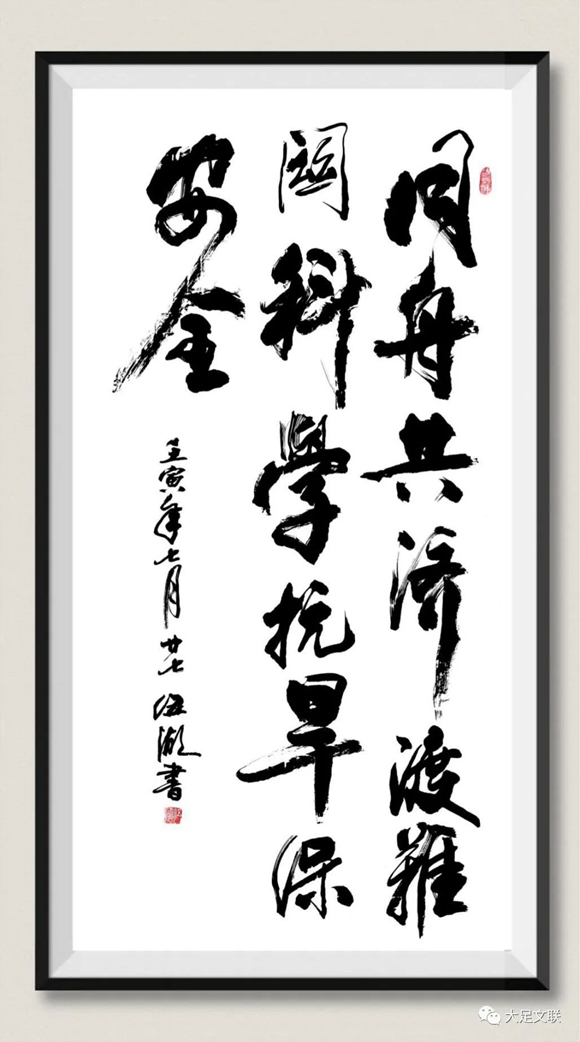 同舟共济渡难
关科学抗旱保
安全
壬寅年七月廿七伍湖书
大足文联